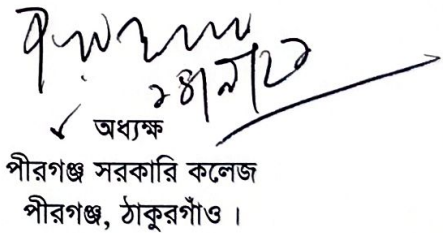 অধ্যক্ষ
পীরগঞ্জ সরকারি কলেজ
পীরগঞ্জ, ঠাকুরগাঁও ।